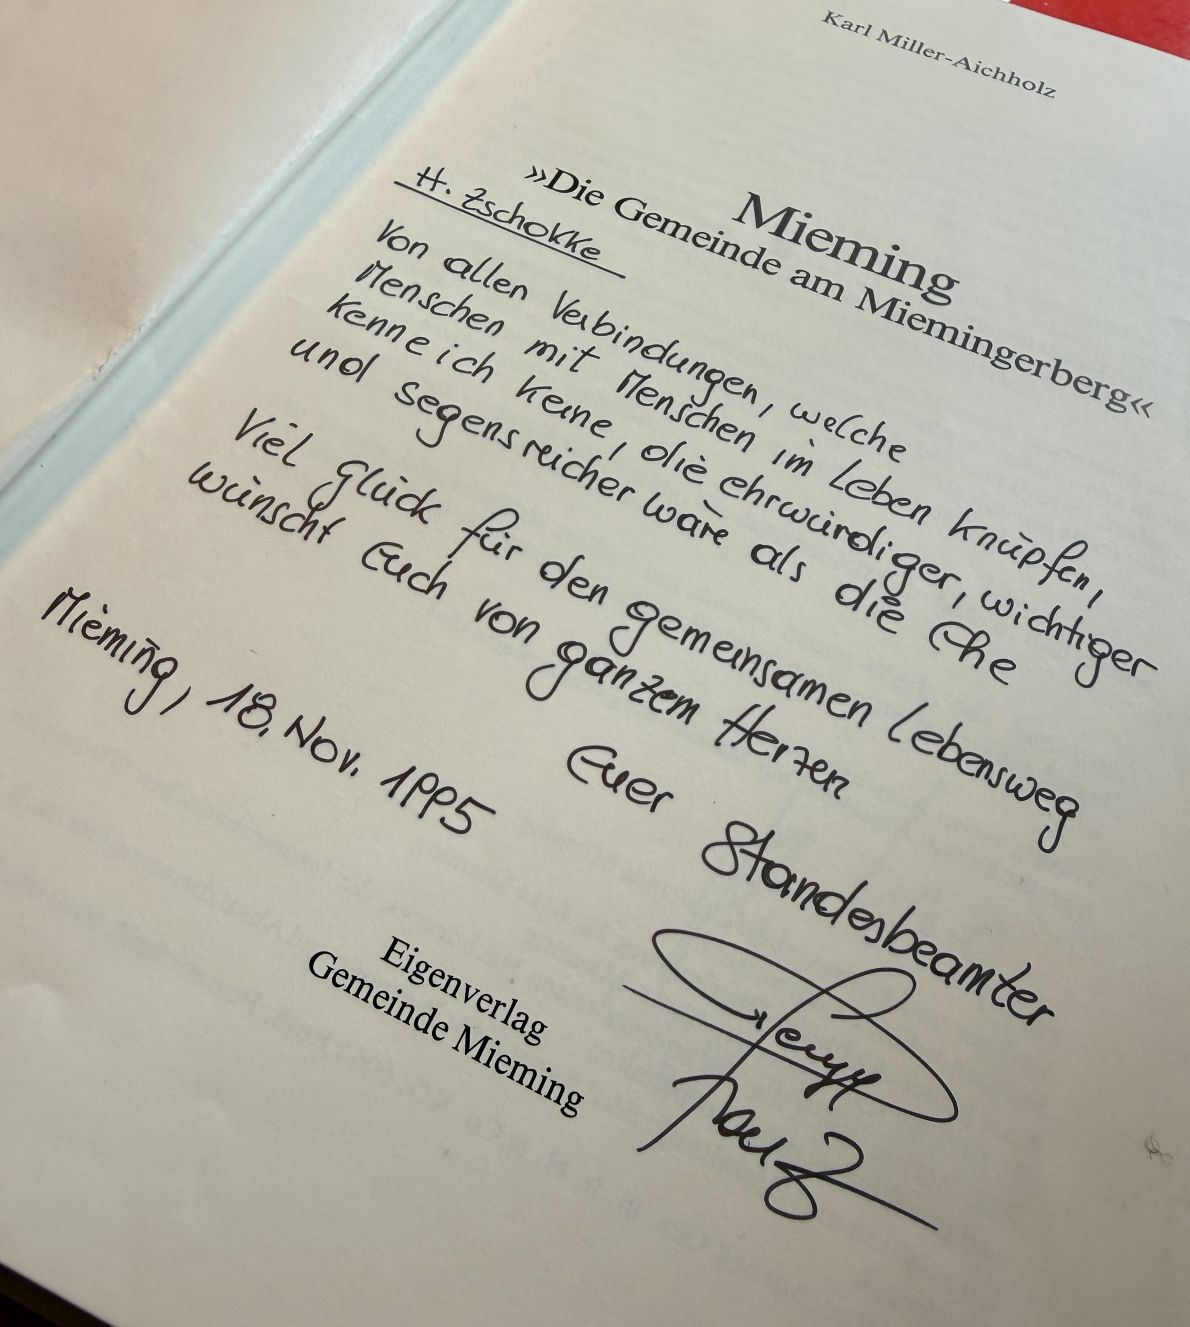 Karl Miller-Aichholz
Mieming
»Die Gemeinde am Miemingerberg«
H. Zschokke
Von allen Verbindungen, welche
Menschen mit Menschen im Leben knüpfen,
kenne ich keine, die ehrwürdiger, wichtiger
und segensreicher wäre als die Ehe
Viel Glück für den gemeinsamen Lebensweg
wünscht Euch von ganzem Herzen
Euer Standesbeamter
Mieming, 18. Nov. 1995
Eigenverlag
Gemeinde Mieming